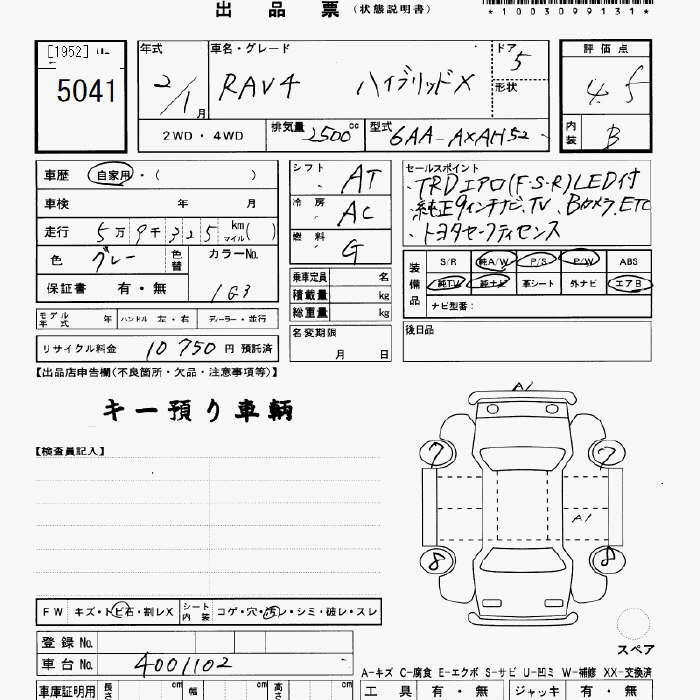 出品票 (状態説明書)
*1003099131*
[1952]
5041
年式 車名・グレード ドア 評価点
2/1月 RAV4 ハイブリッドX 5 4.5
形状
2WD・4WD 排気量 2500cc 型式 6AA-AXAH52 内装 B
車歴 自家用・( )
車検 年 月
走行 5万9千325 km マイル( )
色 グレー 色替 カラーNo. 1G3
保証書 有・無
モデル年式 年 ハンドル 左・右 ディーラー・並行
リサイクル料金 10750 円 預託済
シフト AT
冷房 AC
燃料 G
乗車定員 名
積載量 kg
総重量 kg
名変期限 月 日
セールスポイント
・TRDエアロ(F・S・R)LED付
・純正9インチナビ、TV、Bカメラ、ETC
・トヨタセーフティセンス
装備品 S/R 純A/W P/S P/W ABS
純TV 純ナビ 革シート 外ナビ エアB
ナビ型番:
後日品
【出品店申告欄(不良箇所・欠品・注意事項等)】
キー預り車輌
【検査員記入】
A1
7 7
A1
8 8
スペア
FW キズ・トビ石・割レX シート内装 コゲ・穴・汚レ・シミ・破レ・スレ
登録No.
車台No. 4001102
A-キズ C-腐食 E-エクボ S-サビ U-凹ミ W-補修 XX-交換済
車庫証明用 長さ cm 幅 cm 高さ cm 工具 有・無 ジャッキ 有・無